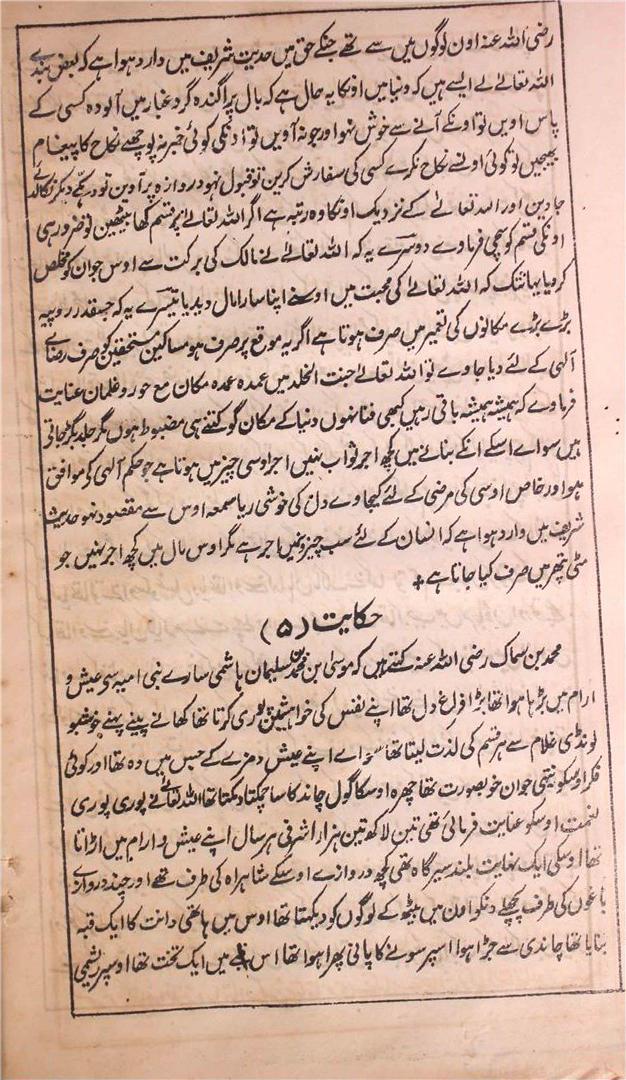 رضی اللہ عنہ اون لوگوں میں سے تھے جنکے حق میں حدیث شریف میں وارد ہوا ہے کہ بعض بندے
اللہ تعالےٰ لے ایسے ہیں کہ دنیا میں اونکا یہ حال ہے کہ بال پراگندہ گرد غبار میں آلودہ کسی کے
پاس اویں تو اونکے آنے سے خوش نہو اور جو نہ آویں تو اونکی کوئی خبر نہ پوچھے نکاح کا پیغام
بھیجیں تو کوئی اونسے نکاح نکرے کسی کی سفارش کریں تو قبول نہو دروازہ پر آوین تو دھکے دیکر نکالدئے
جاوین اور اللہ تعالےٰ کے نزدیک اونکا وہ رتبہ ہے اگر اللہ تعالےٰ پر قسم کھا بیٹھین تو ضرور ہی
اونکی قسم کو سچی فرماوے دوسرے یہ کہ اللہ تعالےٰ نے مالک کی برکت سے اوس جوان کو مخلص
کر دیا یہانتک کہ اللہ تعالےٰ کی محبت میں اوسنے اپنا سارا مال دیدیا تیسرے یہ کہ جسقدر روپیہ
بڑے بڑے مکانوں کی تعمیر میں صرف ہوتا ہے اگر یہ موقع پر صرف ہو مساکین مستحقین کو صرف رضاے
آلہی کے لئے دیا جاوے تو اللہ تعالےٰ جنت الخلد میں عمدہ عمدہ مکان مع حور و غلمان عنایت
فرماوے کہ ہمیشہ ہمیشہ باقی رہیں کبھی فنا نہوں دنیا کے مکان گو کتنے ہی مضبوط ہوں مگر جلد بگڑجاتی
ہیں سواے اسکے انکے بنانے میں کچھ اجر ثواب نہیں اجر اوسی چیز میں ہوتا ہے جو حکم آلہی کی موافق
ہو اور خاص اوسی کی مرضی کے لئے کیجاوے دل کی خوشی ریا سمعہ اوس سے مقصود نہو حدیث
شریف میں وارد ہوا ہے کہ انسان کے لئے سب چیزونمیں اجر ہے مگر اوس مال میں کچھ اجر نہیں جو
مٹی پتھر میں صرف کیا جاتا ہے +
حکایت (۵)
محمد بن سماک رضی اللہ عنہ کہتے ہیں کہ موسیٰ ابن محمد بن سلیمان ہاشمی سارے بنی امیہ سی عیش و
ارام میں بڑہا ہوا تھا بڑا فراغ دل تھا اپنے نفس کی خواہشیں پوری کرتا تھا کھانے پینے پہنے خوشبو
لونڈی غلام سے ہر قسم کی لذت لیتا تھا سواے اپنے عیش و مزے کے جس میں وہ تھا اور کوئی
فکر اوسکو نتھی جوان خوبصورت تھا چہرہ اوسکا گول چاند کا سا چمکتا دمکتا تھا اللہ تعالےٰ نے پوری پوری
نعمت اوسکو عنایت فرمائی تھی تین لاکھ تین ہزار اشرفی ہر سال اپنے عیش و ارام میں اڑاتا
تھا اوسکی ایک نہایت بلند سیرگاہ تھی کچھ دروازے اوسکے شاہراہ کی طرف تھے اور چند دروازے
باغوں کی طرف پچھلے دنکو اون میں بیٹھ کے لوگوں کو دیکھتا تھا اوس میں ہاتھی دانت کا ایک قبہ
بنایا تھا چاندی سے جڑا ہوا اسپر سونے کا پانی پھرا ہوا تھا اس قبے میں ایک تخت تھا اوسپر ریشمی